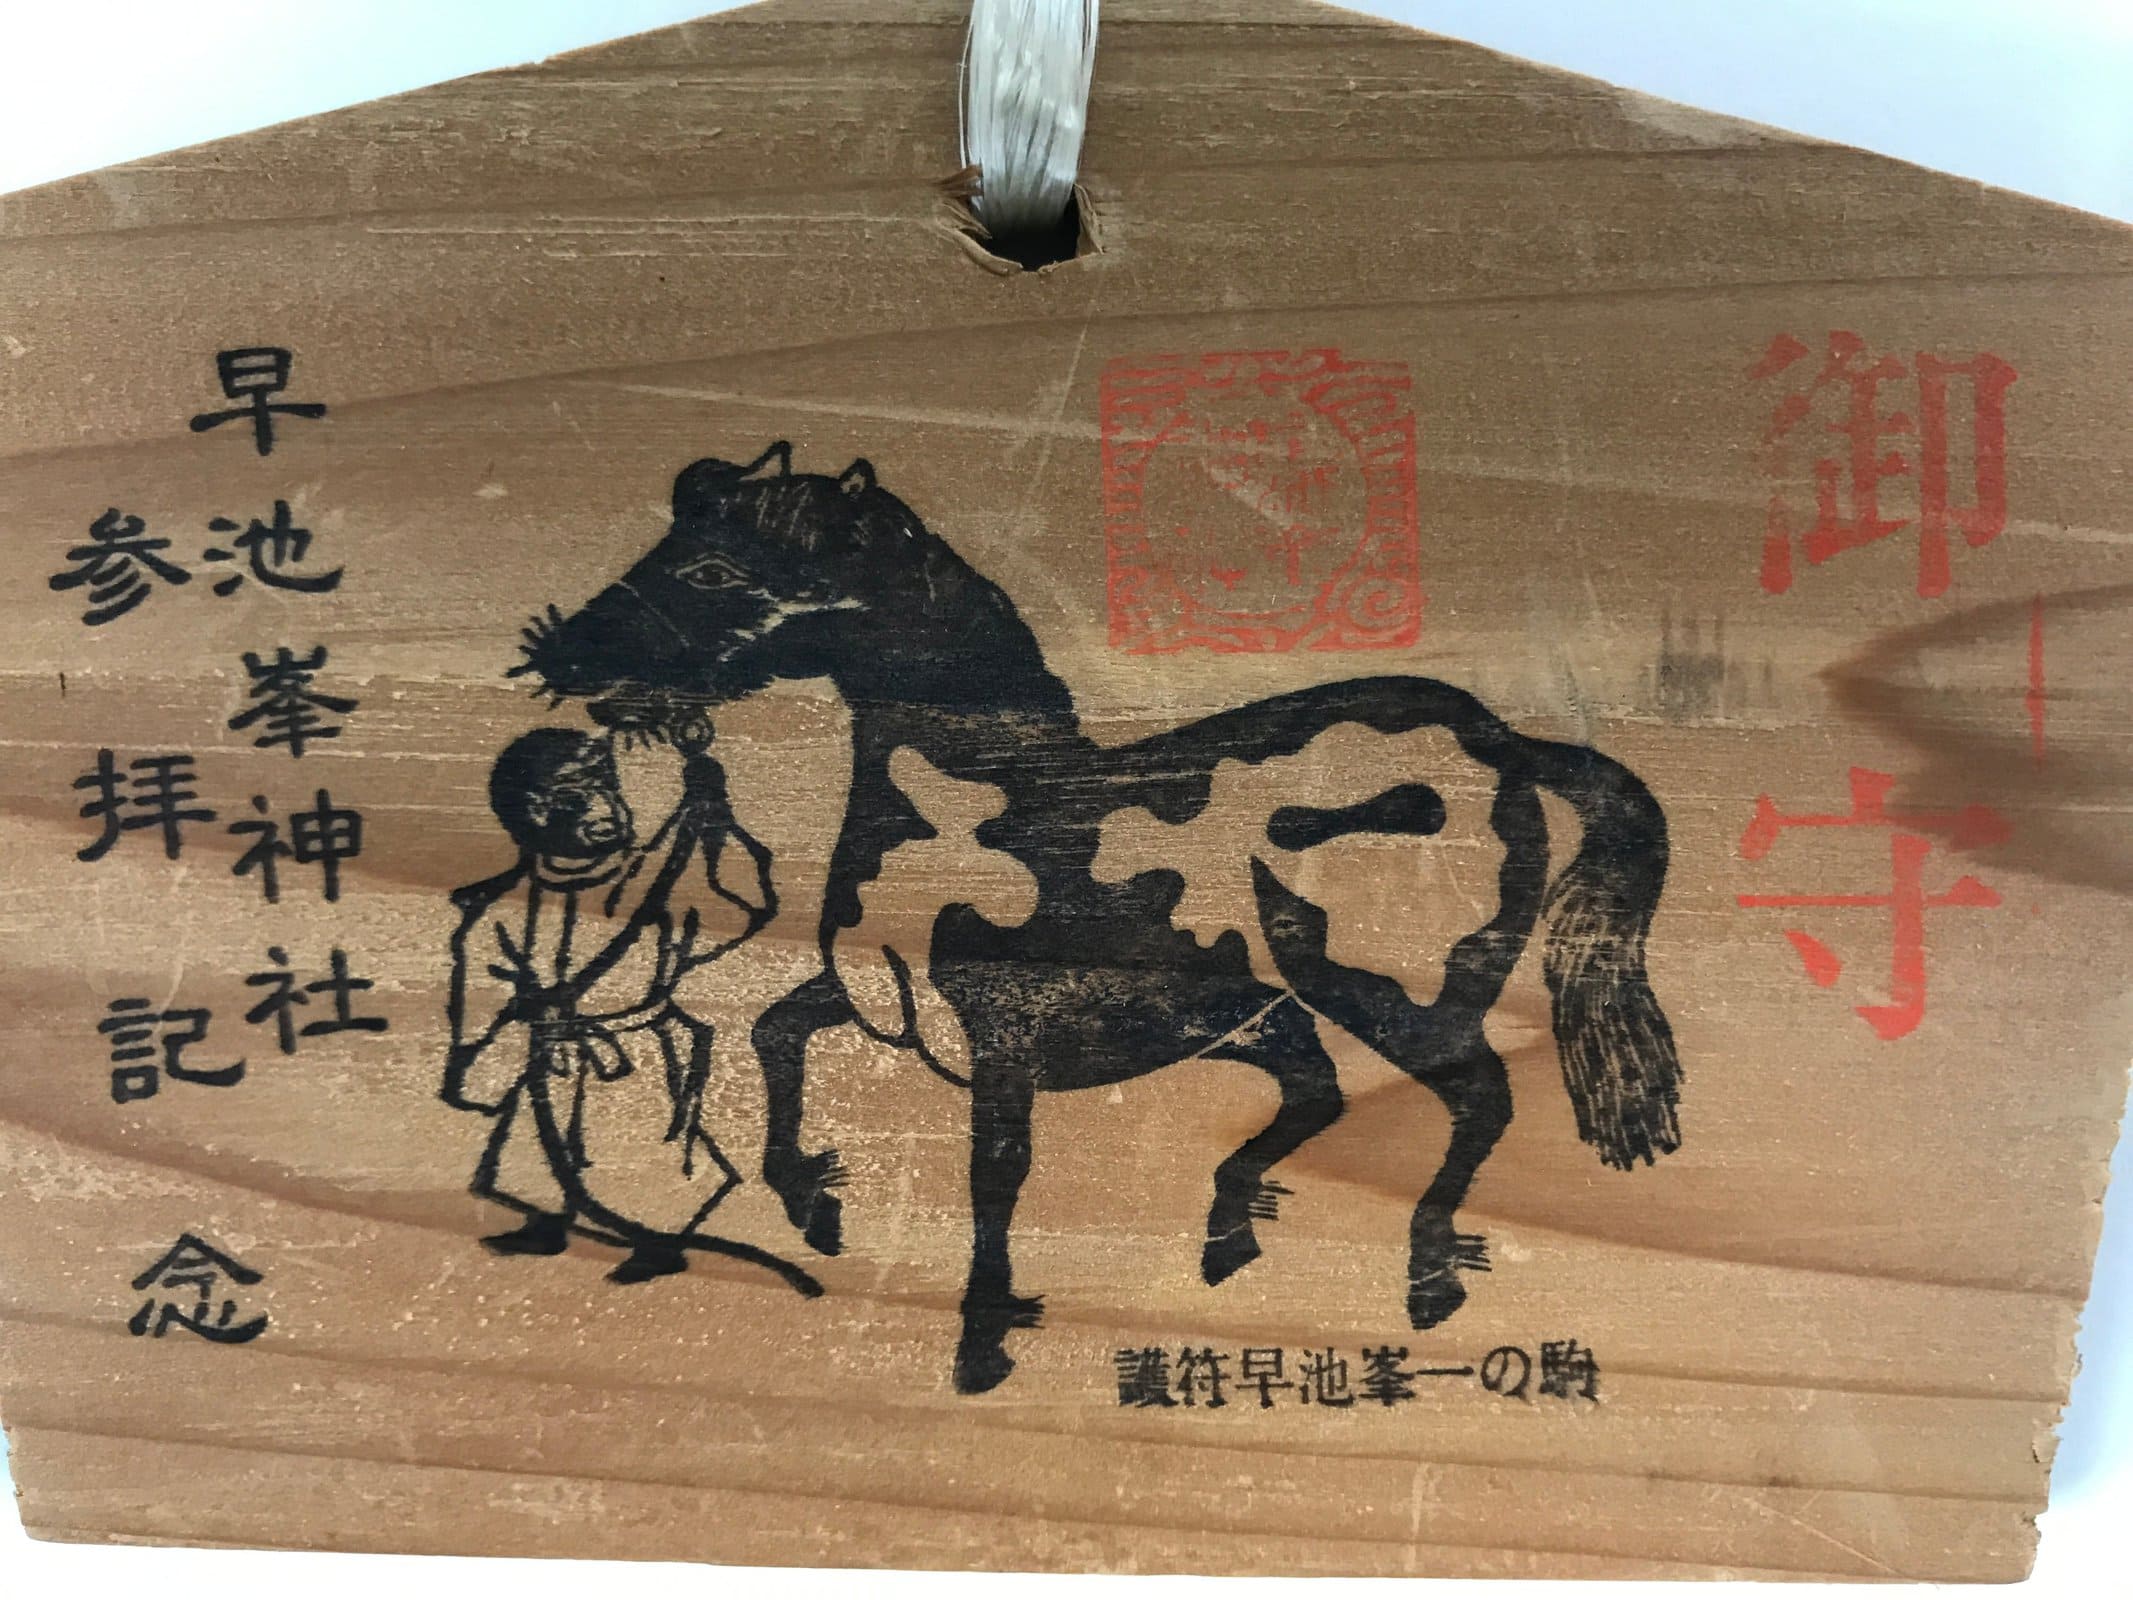 御守
早池峯神社
参拝記念
護符早池峯一の駒